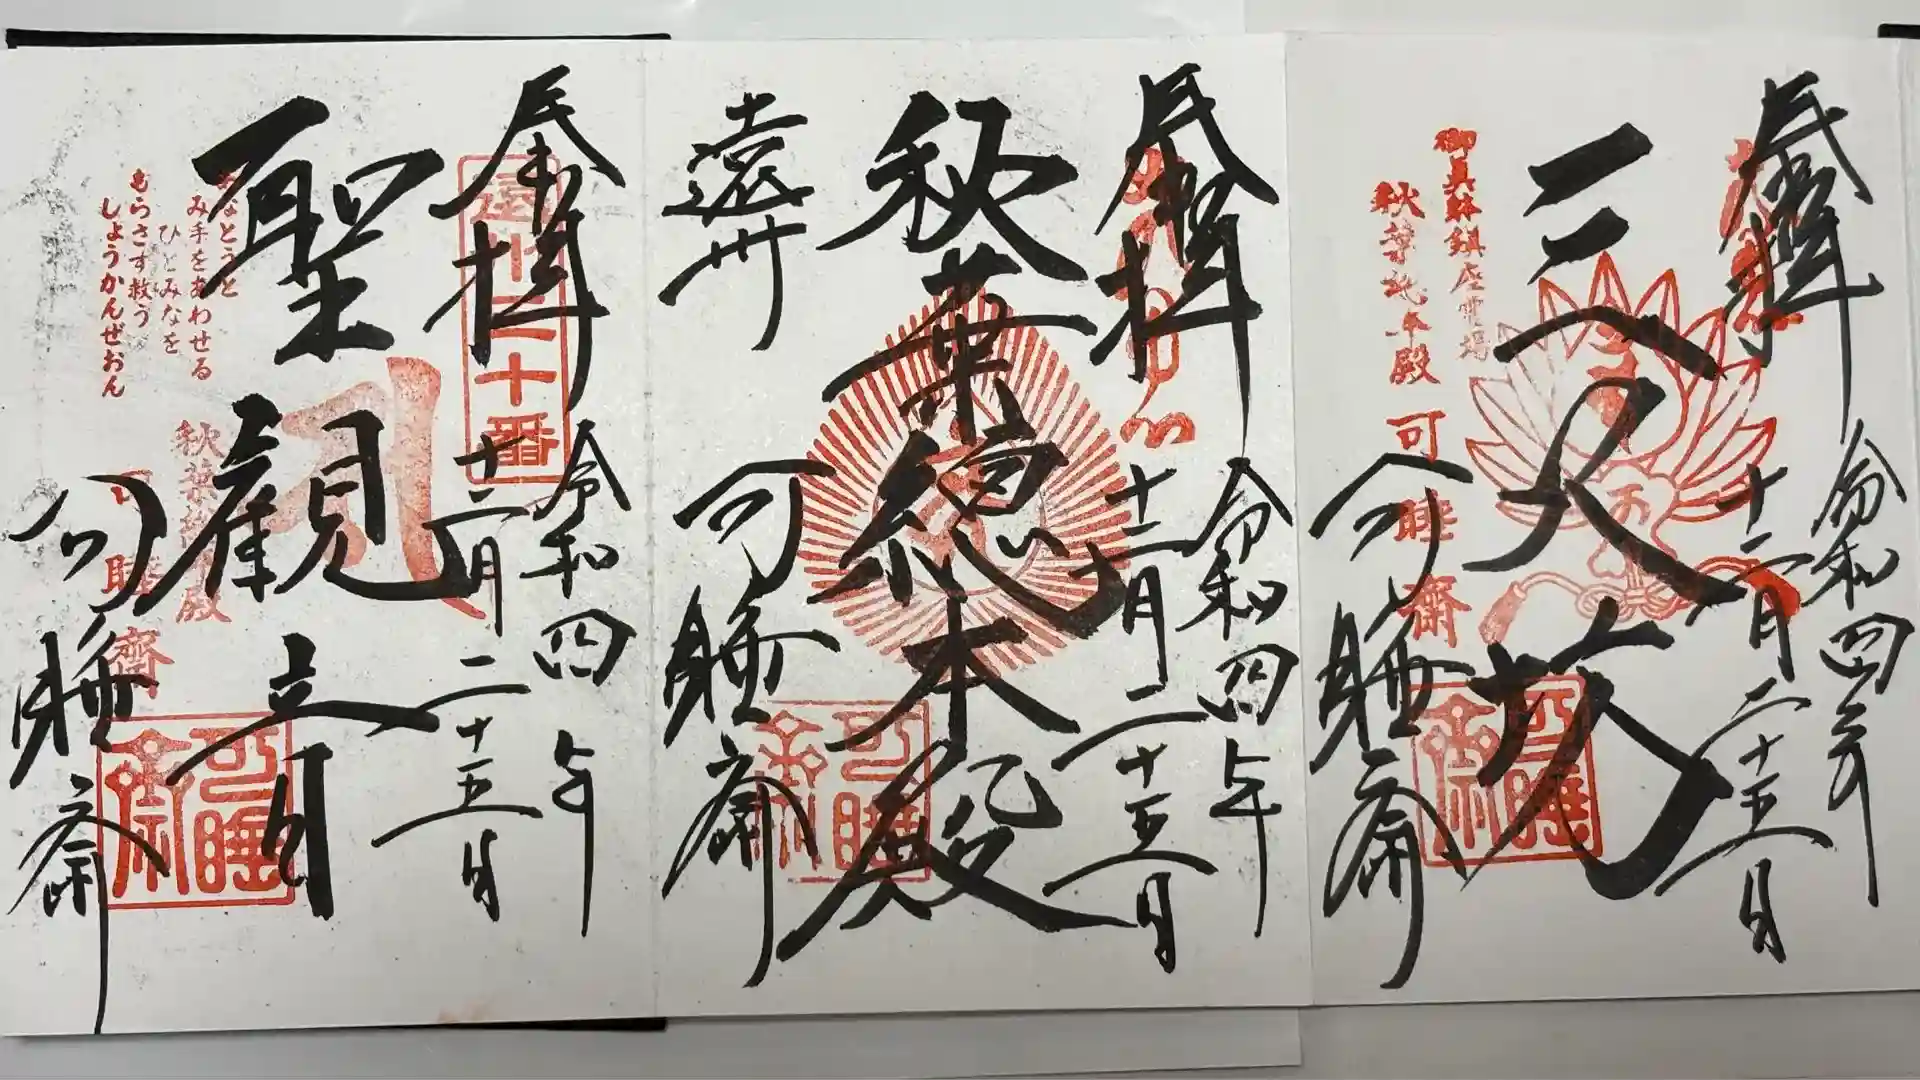 奉拝
令和四年
十二月二十五日
三尺坊
御真躰鎮座霊場
秋葉總本殿
可睡齋
可睡齋
可睡齋
奉拝
令和四年
十二月二十五日
秋葉總本殿
遠州
可睡齋
可睡齋
奉拝
遠州三十三番
令和四年
十二月二十五日
聖観音
なとうと
み手をあわせる
ひとみなを
もらさず救う
しょうかんぜおん
秋葉總本殿
可睡齋
可睡齋
可睡齋